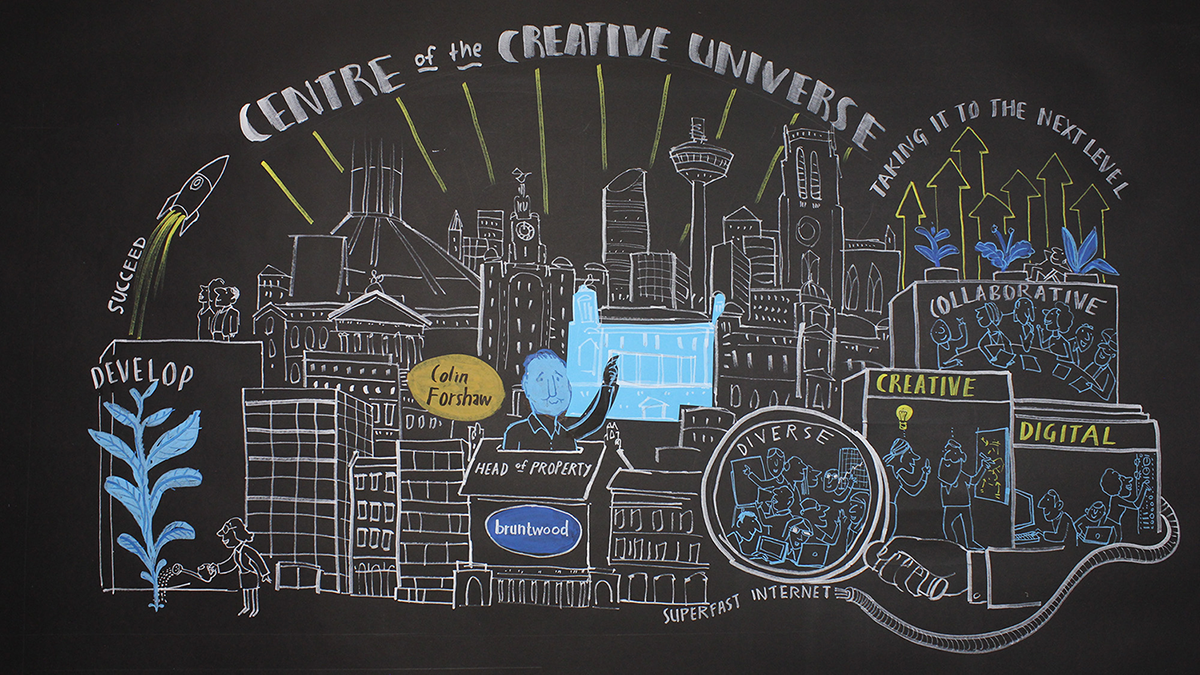 CENTRE of the CREATIVE UNIVERSE
TAKING IT TO THE NEXT LEVEL
SUCCEED
DEVELOP
Colin
Forshaw
HEAD of PROPERTY
bruntwood
COLLABORATIVE
CREATIVE
DIGITAL
DIVERSE
SUPERFAST INTERNET